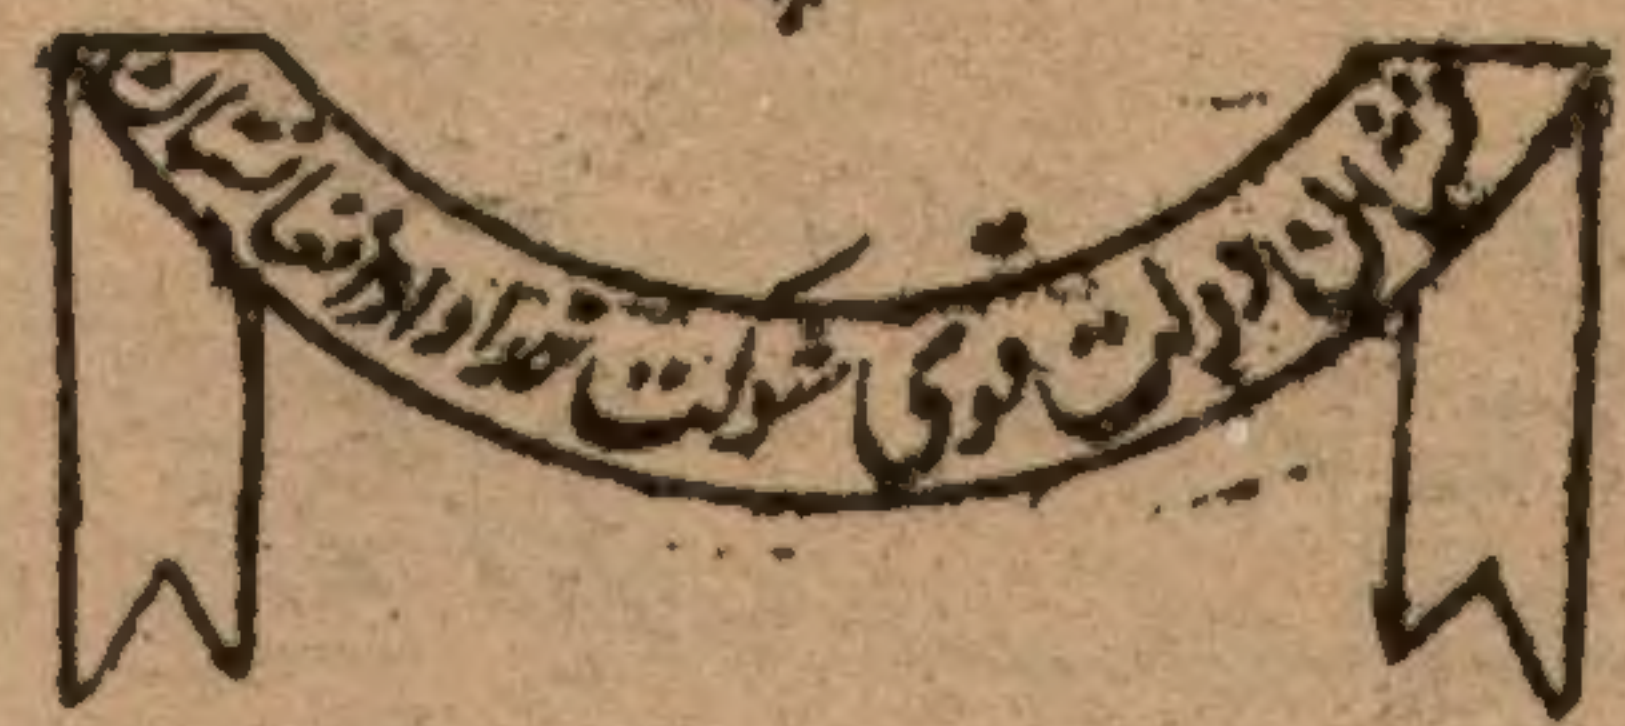 نشان دولت قوی شوکت خداداد افغانستان